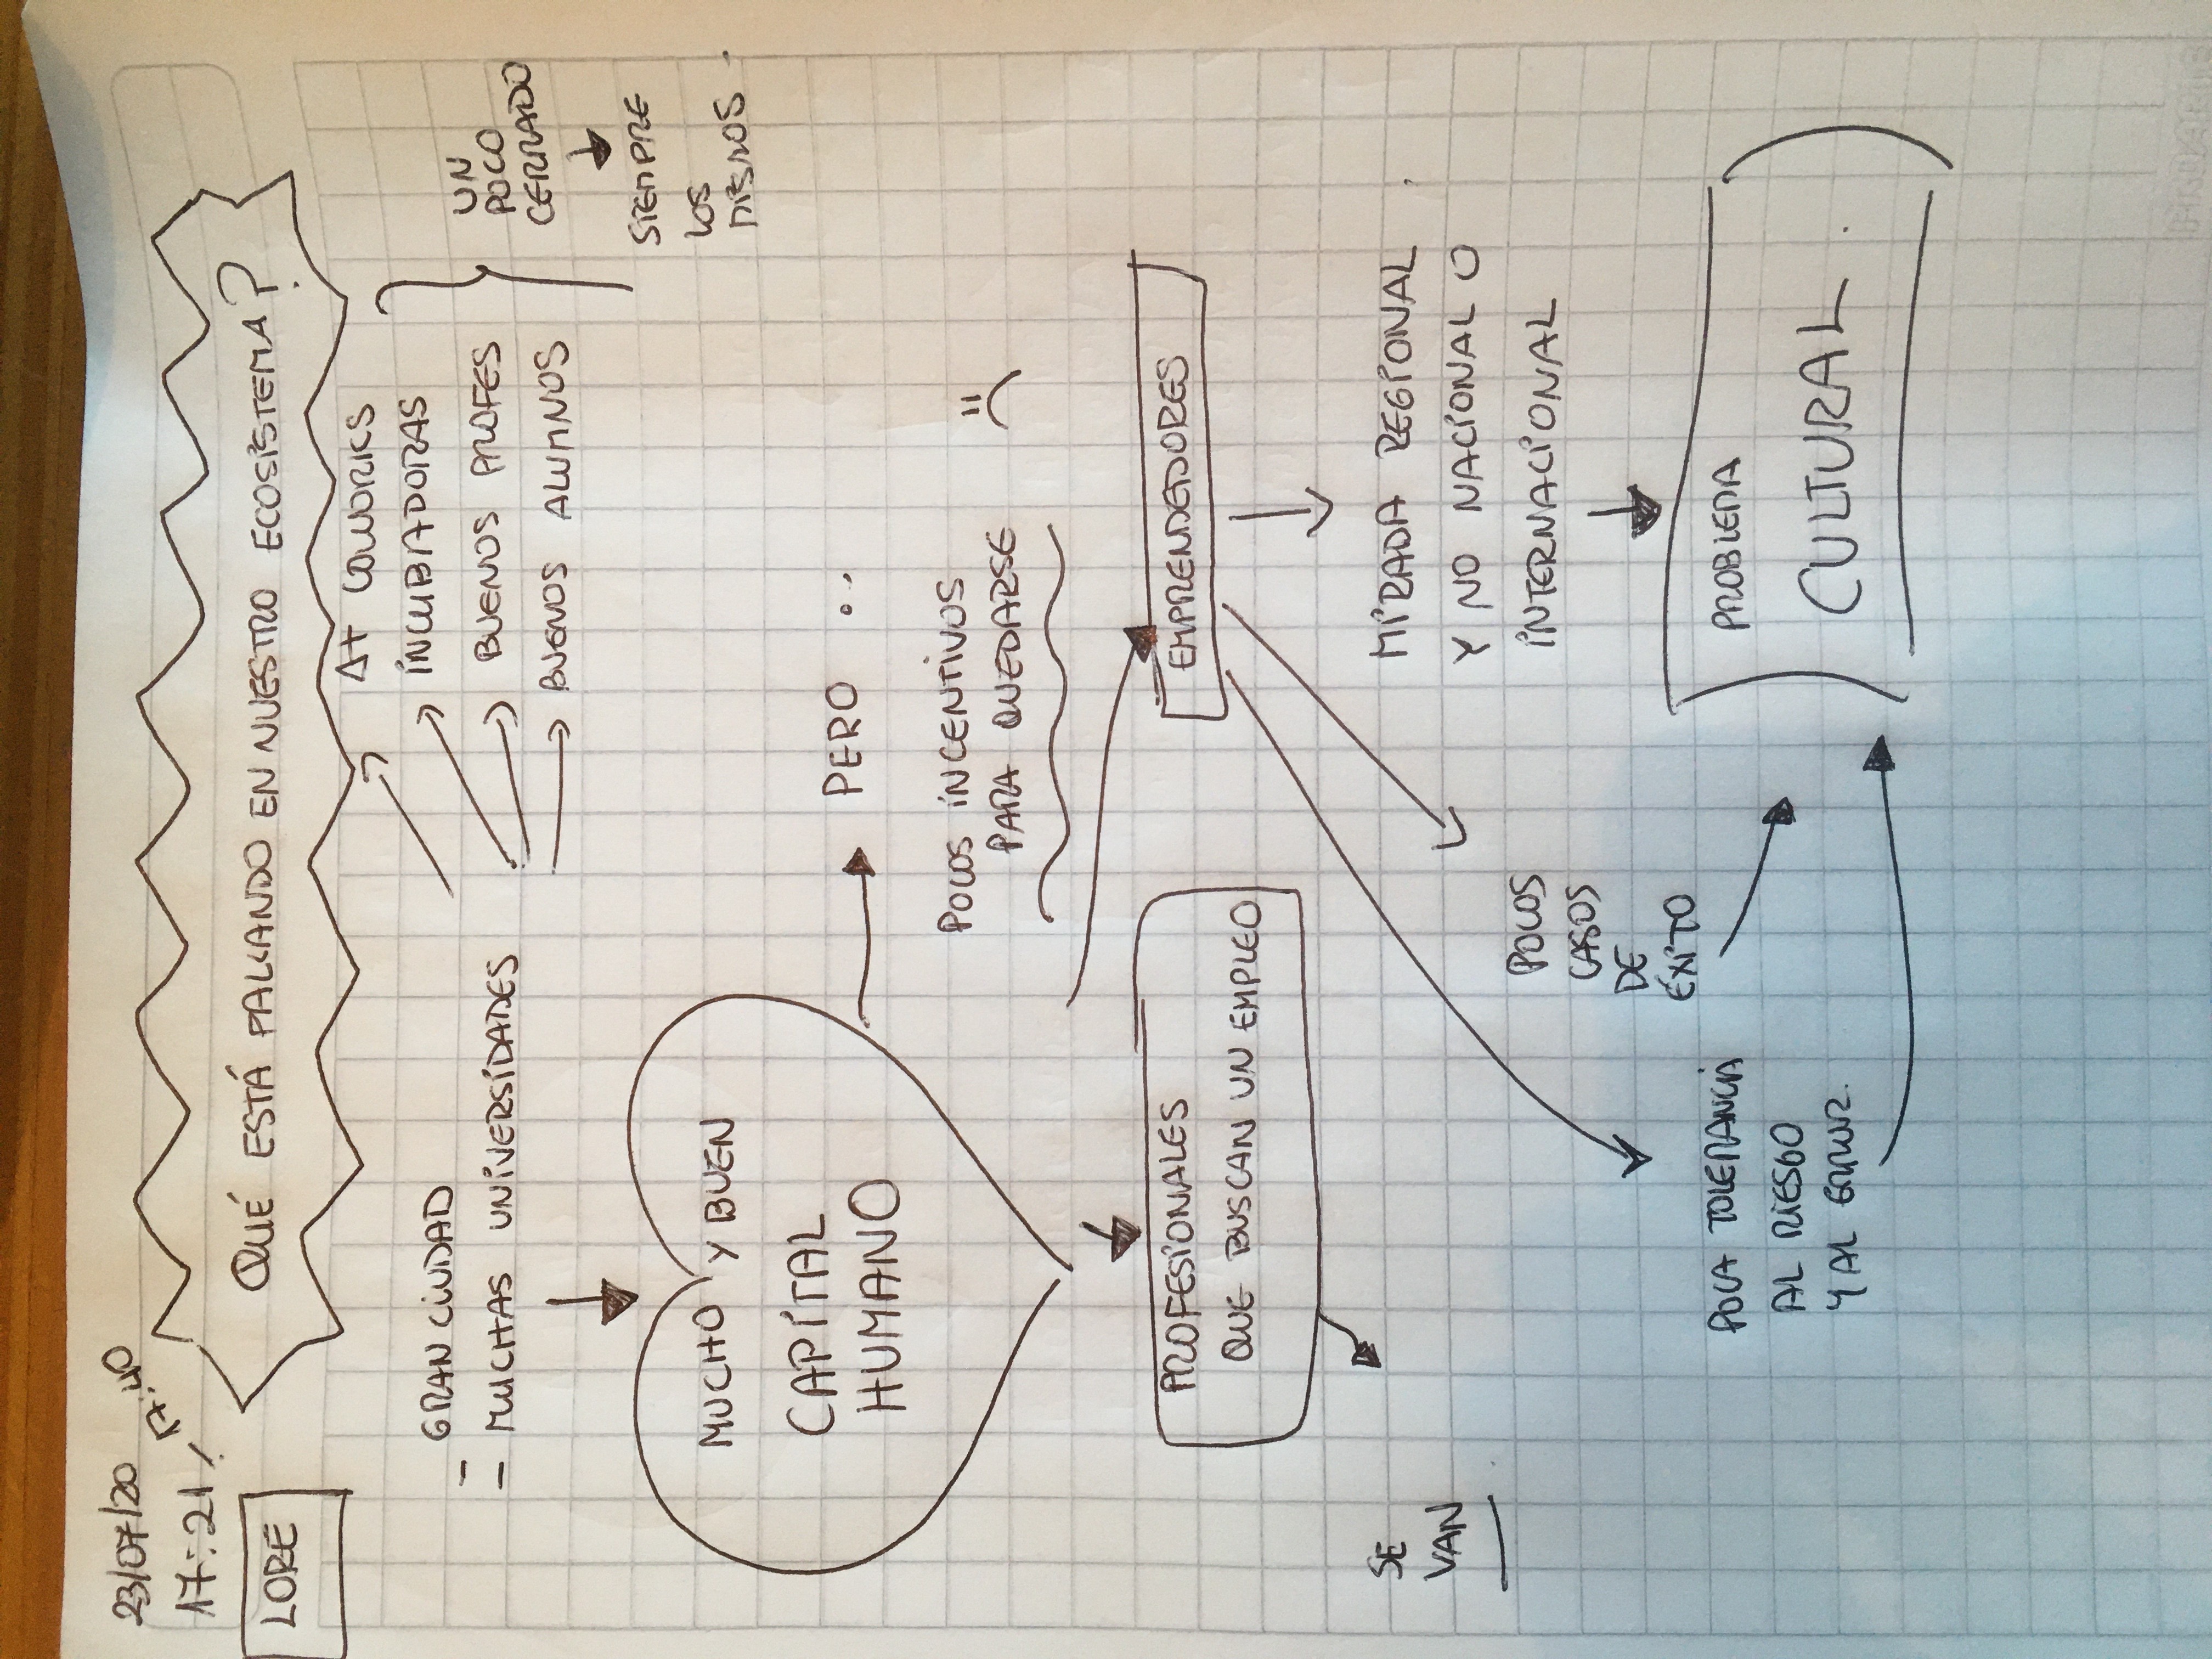 23/07/20
17:21 - 17:40
LORE
QUÉ ESTÁ FALLANDO EN NUESTRO ECOSISTEMA?
- GRAN CIUDAD
- MUCHAS UNIVERSIDADES
COWORKS
INCUBADORAS
BUENOS PROFES
BUENOS ALUMNOS
UN
POCO
CERRADO
SIEMPRE
LOS
MISMOS
MUCHO Y BUEN
CAPITAL
HUMANO
PERO ...
POCOS INCENTIVOS
PARA QUEDARSE
PROFESIONALES
QUE BUSCAN UN EMPLEO
EMPRENDEDORES
SE
VAN
MIRADA REGIONAL
Y NO NACIONAL O
INTERNACIONAL
POCOS
CASOS
DE
ÉXITO
POCA TOLERANCIA
AL RIESGO
Y AL ERROR.
PROBLEMA
CULTURAL.